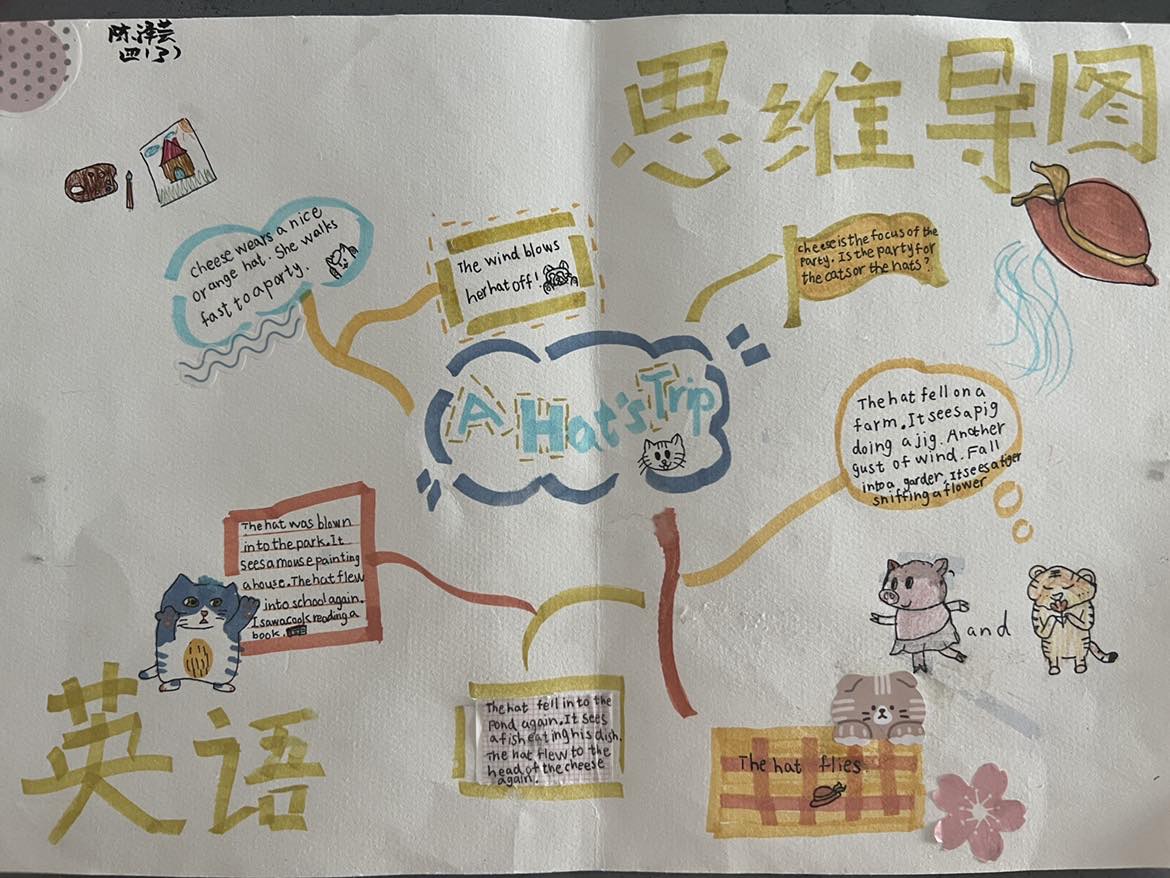 陈泽芸
四(3)
思维导图
Cheese wears a nice
orange hat. She walks
fast to a party.
The wind blows
her hat off!
Cheese is the focus of the
Party. Is the party for
the cats or the hats?
A Hat's Trip
The hat fell on a
farm. It sees a pig
doing a jig. Another
gust of wind. Fall
into a garden. It sees a tiger
sniffing a flower
The hat was blown
into the park. It
sees a mouse painting
a house. The hat flew
into school again.
I saw a cook reading a
book.
and
英语
The hat fell into the
Pond again. It sees
a fish eating his dish.
The hat flew to the
head of the cheese
again.
The hat flies.